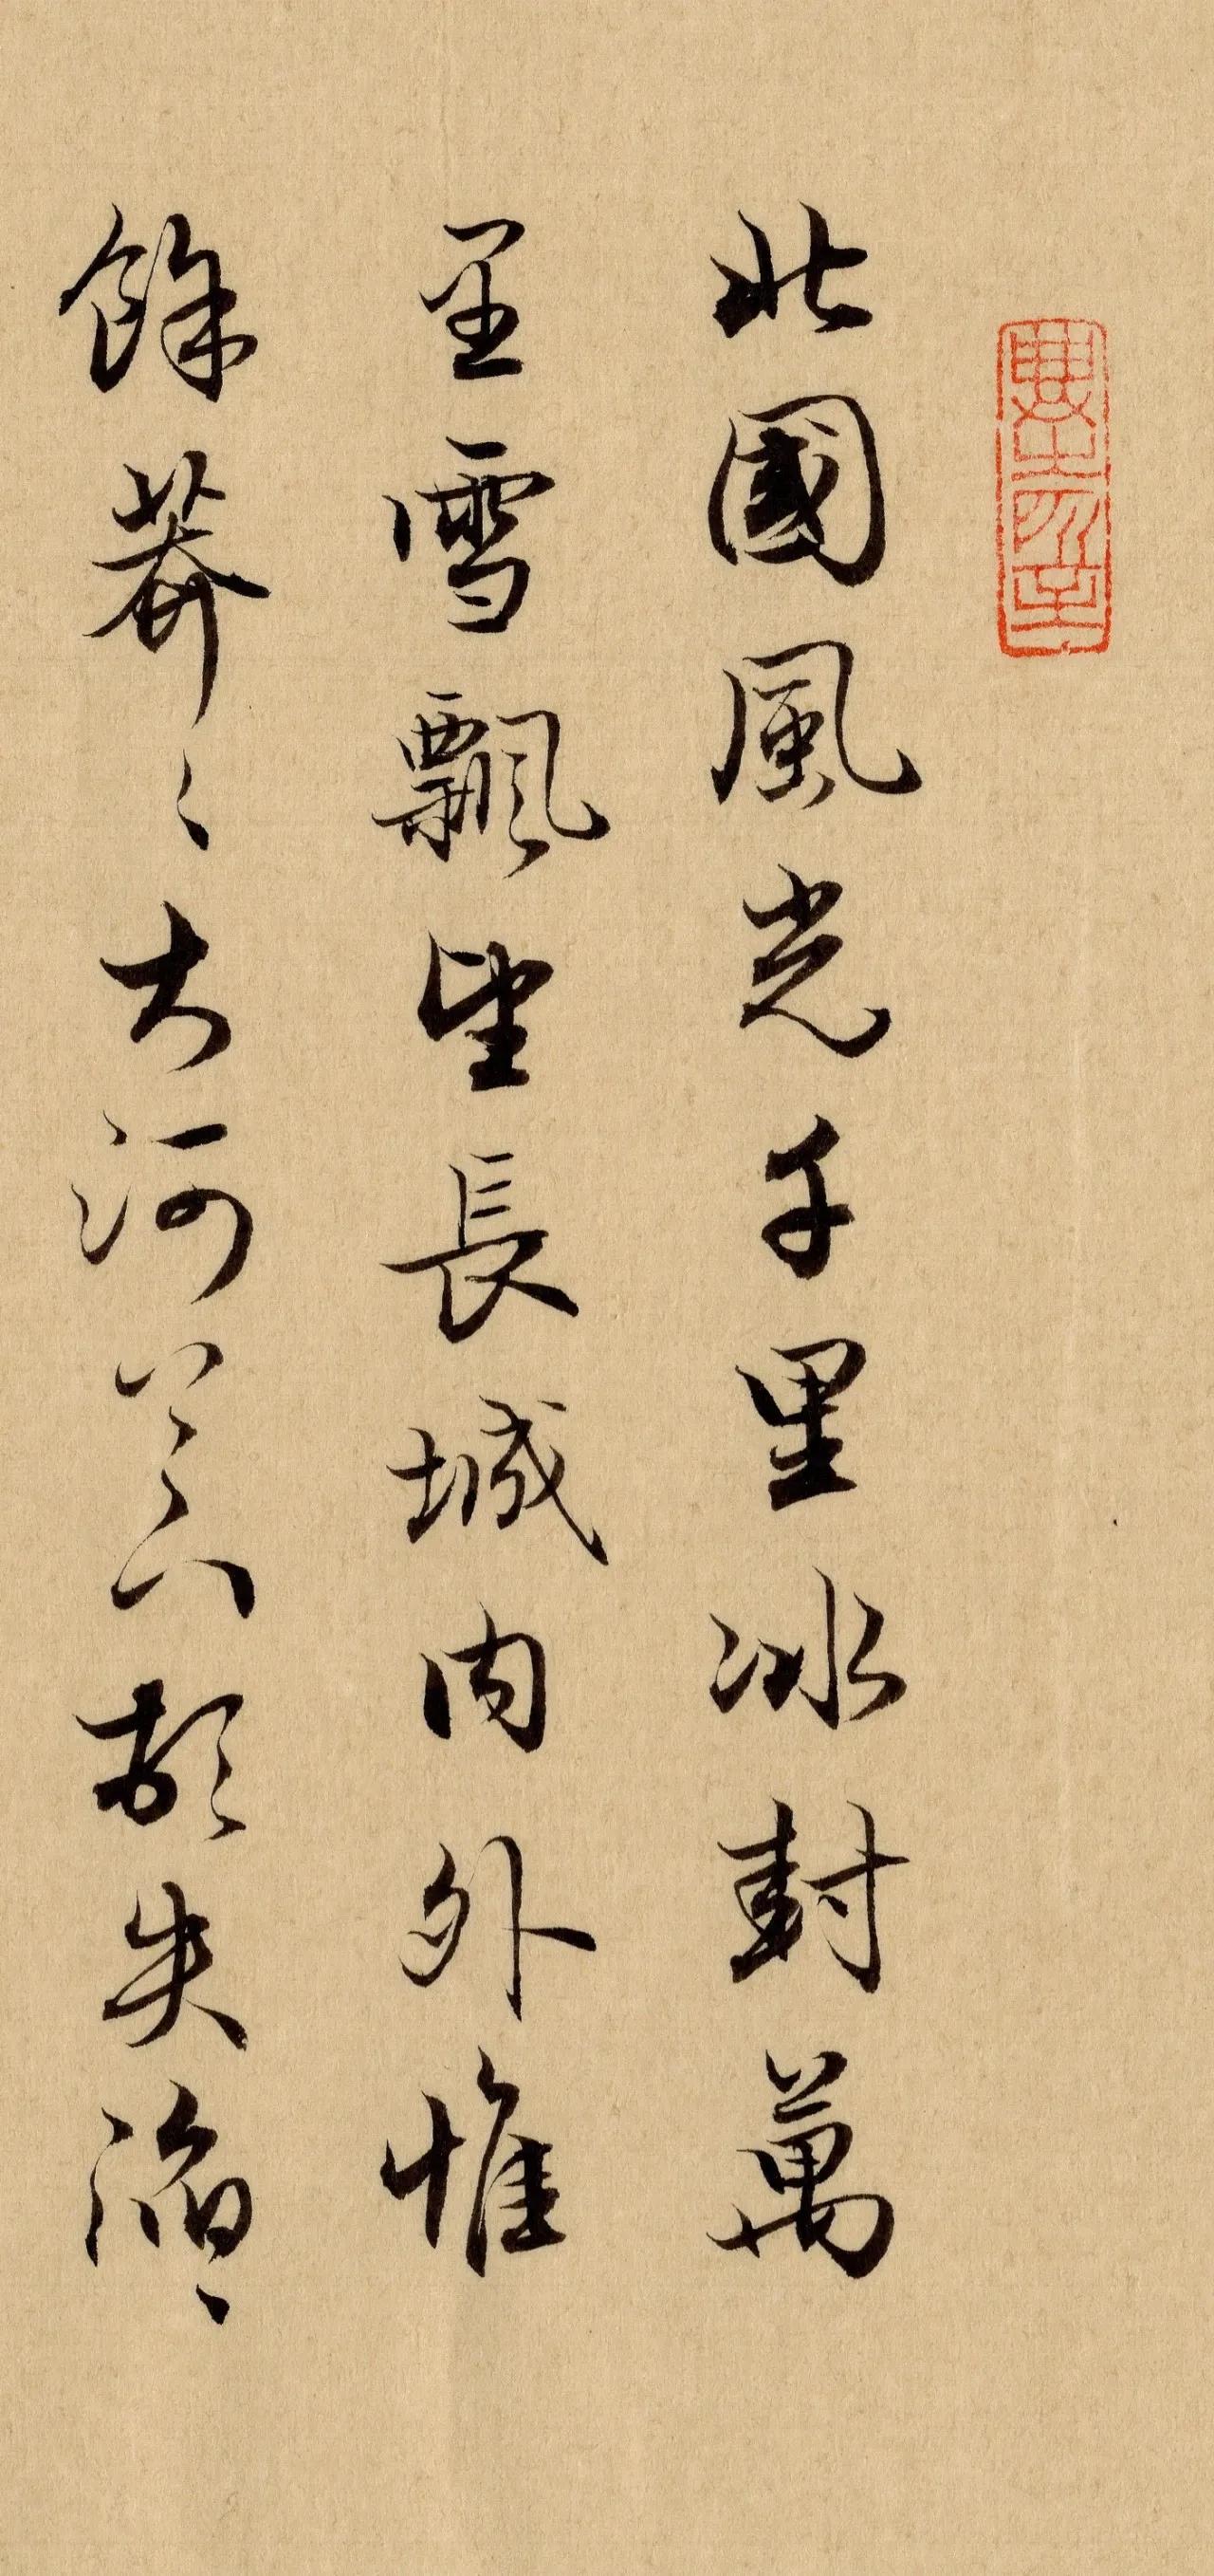 北國風光千里冰封萬
里雪飄望長城内外惟
餘莽〻大河上下頓失滔〻